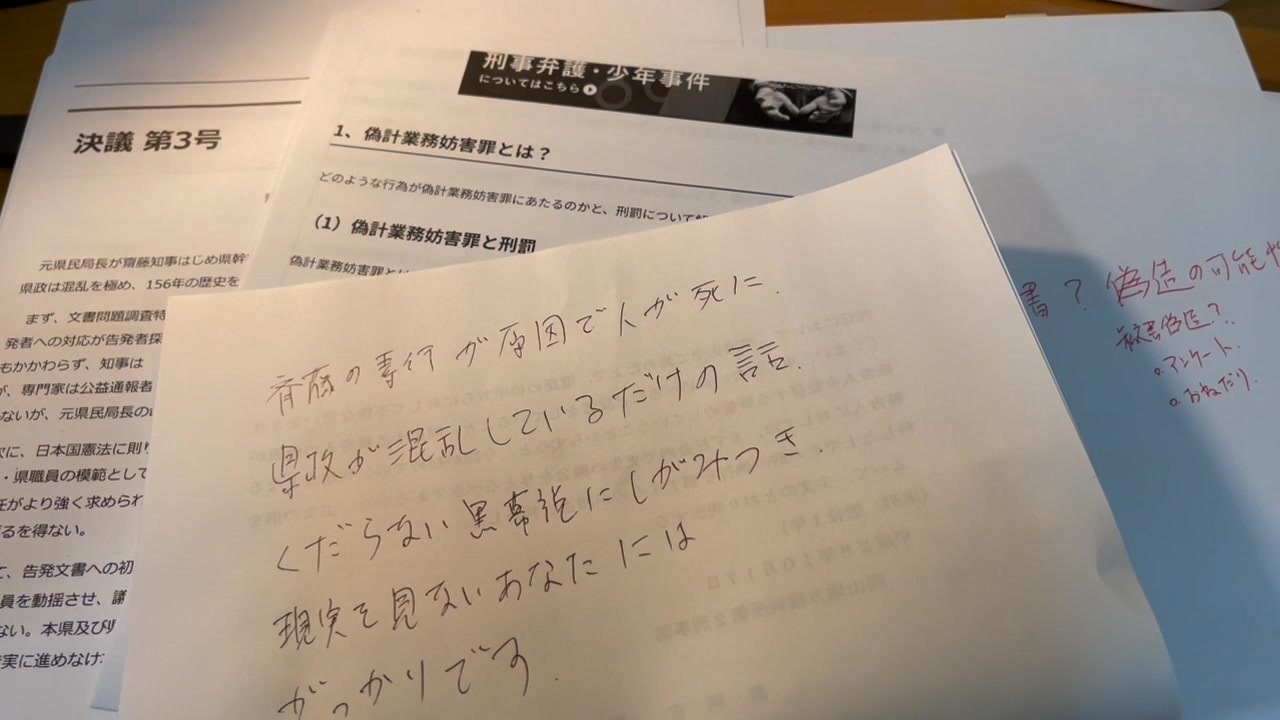 決議 第3号
元県民局長が齋藤知事はじめ県幹
県政は混乱を極め、156年の歴史を
まず、文書問題調査特
発者への対応が告発者探
もかかわらず、知事は
が、専門家は公益通報者
ないが、元県民局長の
次に、日本国憲法に則り
・県職員の模範として
任がより強く求められ
るを得ない。
て、告発文書への初
員を動揺させ、議
ない。本県及び
実に進めなけ
刑事弁護・少年事件
についてはこちら
1、偽計業務妨害罪とは？
どのような行為が偽計業務妨害罪にあたるのかと、刑罰について
（1）偽計業務妨害罪と刑罰
偽計業務妨害罪とは
斉藤の専行が原因で人が死に、
県政が混乱しているだけの話。
くだらない黒幕説にしがみつき、
現実を見ないあなたには
がっかりです。
書？偽造の可能性
被害者は？
。アンケート
。おねだり